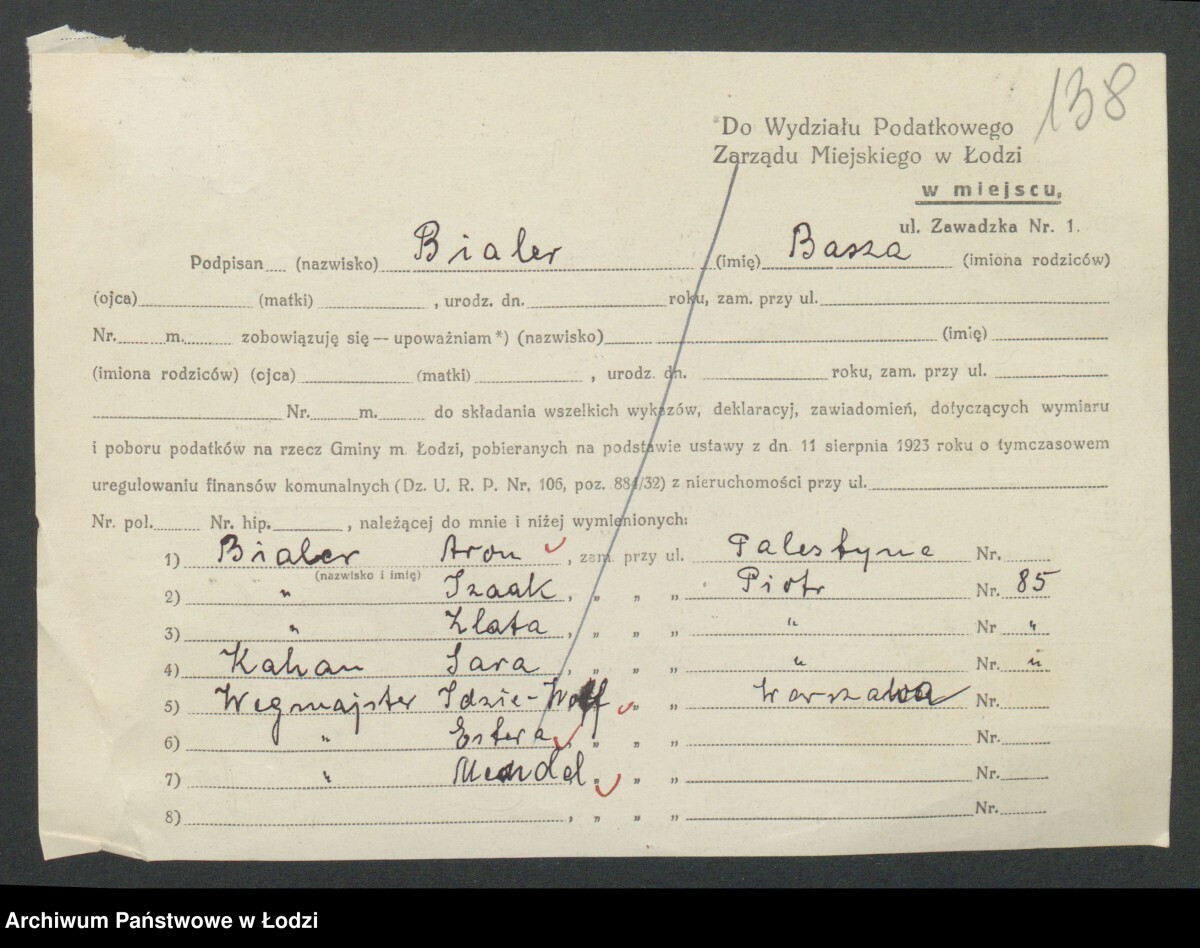 138
Do Wydziału Podatkowego
Zarządu Miejskiego w Łodzi
w miejscu,
ul. Zawadzka Nr. 1.
Podpisan (nazwisko) Bialer (imię) Basza (imiona rodziców)
(ojca) (matki) , urodz. dn. roku, zam. przy ul.
Nr. m. zobowiązuję się — upoważniam *) (nazwisko) (imię)
(imiona rodziców) (ojca) (matki) , urodz. dn. roku, zam. przy ul.
Nr. m. do składania wszelkich wykazów, deklaracyj, zawiadomień, dotyczących wymiaru
i poboru podatków na rzecz Gminy m. Łodzi, pobieranych na podstawie ustawy z dn. 11 sierpnia 1923 roku o tymczasowem
uregulowaniu finansów komunalnych (Dz. U. R. P. Nr. 106, poz. 884/32) z nieruchomości przy ul.
Nr. pol. Nr. hip. , należącej do mnie i niżej wymienionych:
1) Bialer Aron , zam. przy ul. Palestyna Nr.
(nazwisko i imię)
2) " Izaak , " " " Piotr Nr. 85
3) " Zlata , " " " " Nr "
4) Kahan Sara , " " " " Nr. "
5) Wegmajster Idzie-Wolf " " Warszawa Nr.
6) " Estera , " " " Nr.
7) " Mendel " " " Nr.
8) , " " " Nr.
Archiwum Państwowe w Łodzi